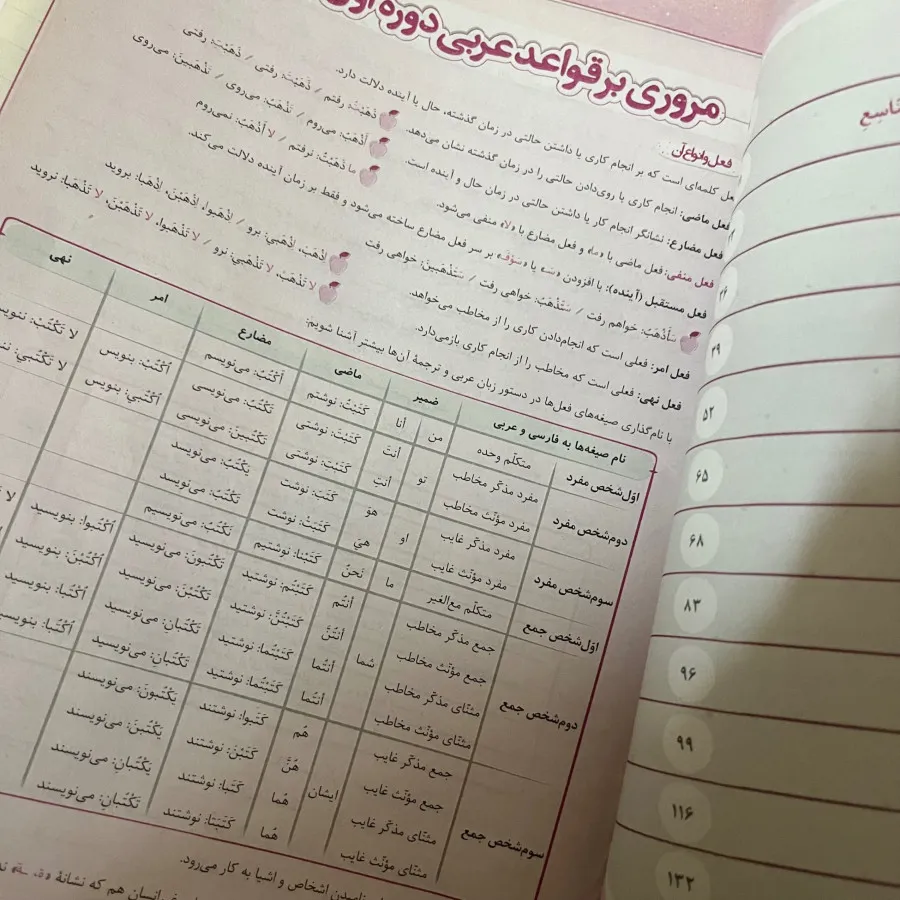 مروری بر قواعد عربی دوره اول
فعل و انواع آن
کلمه‌ای است که بر انجام کاری یا داشتن حالتی در زمان گذشته، حال یا آینده دلالت دارد.
فعل ماضی: انجام کاری یا روی‌دادن حالتی را در زمان گذشته نشان می‌دهد.
ذَهَبْتُ: رفتم / ذَهَبْتَ: رفتی / ذَهَبْتِ: رفتی
فعل مضارع: نشانگر انجام کار یا داشتن حالتی در زمان حال و آینده است.
أَذْهَبُ: می‌روم / تَذْهَبُ: می‌روی / تَذْهَبینَ: می‌روی
فعل منفی: فعل ماضی با «ما» و فعل مضارع با «لا» منفی می‌شود.
ما ذَهَبْتُ: نرفتم / لا أَذْهَبُ: نمی‌روم
فعل مستقبل (آینده): با افزودن «سَـ» یا «سَوْفَ» بر سر فعل مضارع ساخته می‌شود و فقط بر زمان آینده دلالت می‌کند.
سَأَذْهَبُ: خواهم رفت / سَتَذْهَبُ: خواهی رفت / سَتَذْهَبینَ: خواهی رفت
فعل امر: فعلی است که انجام‌دادن کاری را از مخاطب می‌خواهد.
اِذْهَبْ، اِذْهَبي: برو / اِذْهَبوا، اِذْهَبْنَ، اِذْهَبا: بروید
فعل نهی: فعلی است که مخاطب را از انجام کاری بازمی‌دارد.
لا تَذْهَبْ، لا تَذْهَبي: نرو / لا تَذْهَبوا، لا تَذْهَبْنَ، لا تَذْهَبا: نروید
با نام‌گذاری صیغه‌های فعل‌ها در دستور زبان عربی و ترجمهٔ آن‌ها بیشتر آشنا شویم:
نام صیغه‌ها به فارسی و عربی ضمیر ماضی مضارع امر نهی
اوّل‌شخص مفرد متکلّم وحده من أنا کَتَبْتُ: نوشتم أَکْتُبُ: می‌نویسم
دوم‌شخص مفرد مفرد مذکّر مخاطب تو أنتَ کَتَبْتَ: نوشتی تَکْتُبُ: می‌نویسی اُکْتُبْ: بنویس لا تَکْتُبْ:
مفرد مؤنّث مخاطب أنتِ کَتَبْتِ: نوشتی تَکْتُبینَ: می‌نویسی اُکْتُبي: بنویس لا تَکْتُبي:
سوم‌شخص مفرد مفرد مذکّر غایب او هوَ کَتَبَ: نوشت یَکْتُبُ: می‌نویسد
مفرد مؤنّث غایب هيَ کَتَبَتْ: نوشت تَکْتُبُ: می‌نویسد
اوّل‌شخص جمع متکلّم مع‌الغیر ما نَحنُ کَتَبْنا: نوشتیم نَکْتُبُ: می‌نویسیم
دوم‌شخص جمع جمع مذکّر مخاطب شما أنتُم کَتَبْتُم: نوشتید تَکْتُبونَ: می‌نویسید اُکْتُبوا: بنویسید
جمع مؤنّث مخاطب أنتُنَّ کَتَبْتُنَّ: نوشتید تَکْتُبْنَ: می‌نویسید اُکْتُبْنَ: بنویسید
مثنّای مذکّر مخاطب أنتُما کَتَبْتُما: نوشتید تَکْتُبانِ: می‌نویسید اُکْتُبا: بنویسید
مثنّای مؤنّث مخاطب أنتُما کَتَبْتُما: نوشتید تَکْتُبانِ: می‌نویسید اُکْتُبا: بنویسید
سوم‌شخص جمع جمع مذکّر غایب ایشان هُم کَتَبوا: نوشتند یَکْتُبونَ: می‌نویسند
جمع مؤنّث غایب هُنَّ کَتَبْنَ: نوشتند یَکْتُبْنَ: می‌نویسند
مثنّای مذکّر غایب هُما کَتَبا: نوشتند یَکْتُبانِ: می‌نویسند
مثنّای مؤنّث غایب هُما کَتَبَتا: نوشتند تَکْتُبانِ: می‌نویسند
نامیدن اشخاص و اشیا به کار می‌رود.
انسان هم که نشانهٔ
تاسِع
۳۹
۵۲
۶۵
۶۸
۸۳
۹۶
۹۹
۱۱۶
۱۳۲